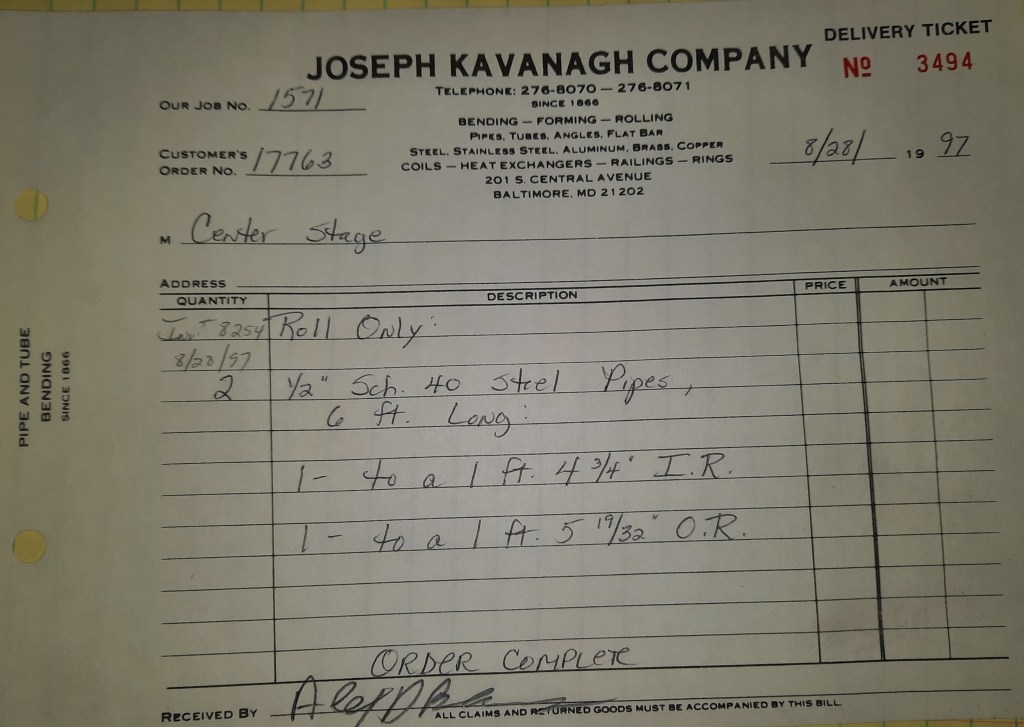 DELIVERY TICKET
JOSEPH KAVANAGH COMPANY
Nº 3494
TELEPHONE: 276-8070 — 276-8071
SINCE 1866
OUR JOB NO. 1571
BENDING — FORMING — ROLLING
PIPES, TUBES, ANGLES, FLAT BAR
STEEL, STAINLESS STEEL, ALUMINUM, BRASS, COPPER
COILS — HEAT EXCHANGERS — RAILINGS — RINGS
201 S. CENTRAL AVENUE
BALTIMORE, MD 21202
CUSTOMER'S
ORDER NO. 17763
8/28/ 19 97
M Center Stage
ADDRESS
QUANTITY DESCRIPTION PRICE AMOUNT
8254 Roll Only:
8/28/97
2 1/2" Sch. 40 Steel Pipes,
6 ft. Long:
1- to a 1 ft. 4 3/4" I.R.
1- to a 1 ft. 5 19/32" O.R.
ORDER COMPLETE
RECEIVED BY
ALL CLAIMS AND RETURNED GOODS MUST BE ACCOMPANIED BY THIS BILL
PIPE AND TUBE
BENDING
SINCE 1866